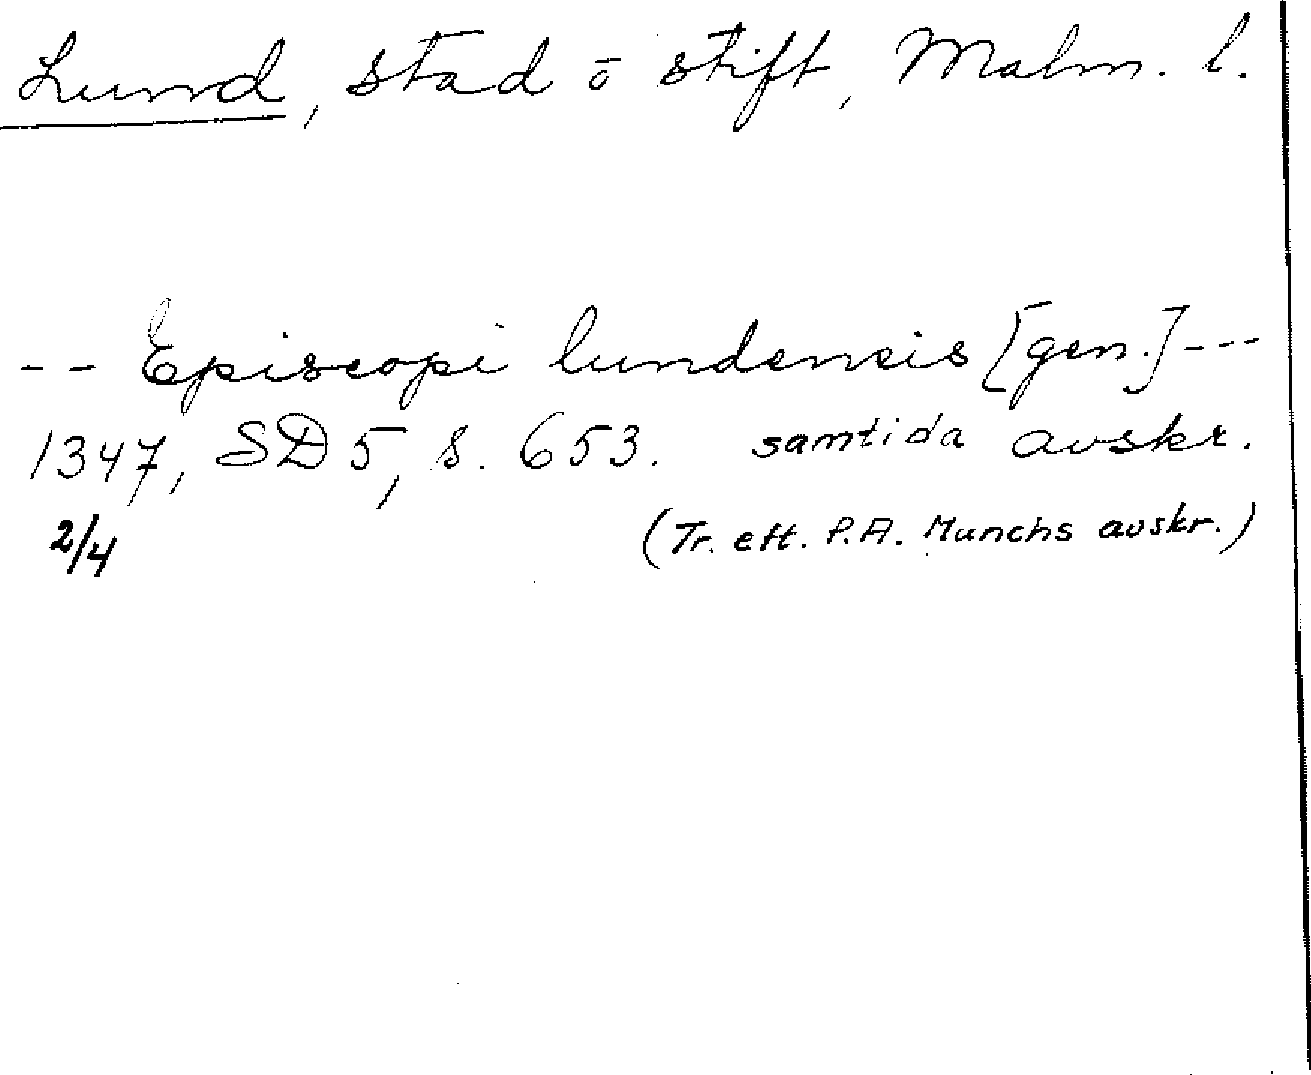 Lund, stad o stift, Malm. l.
-- Episcopi lundensis [gen.] ---
1347, SD 5, s. 653. samtida avskr.
2/4 (Tr. eft. P.A. Munchs avskr.)